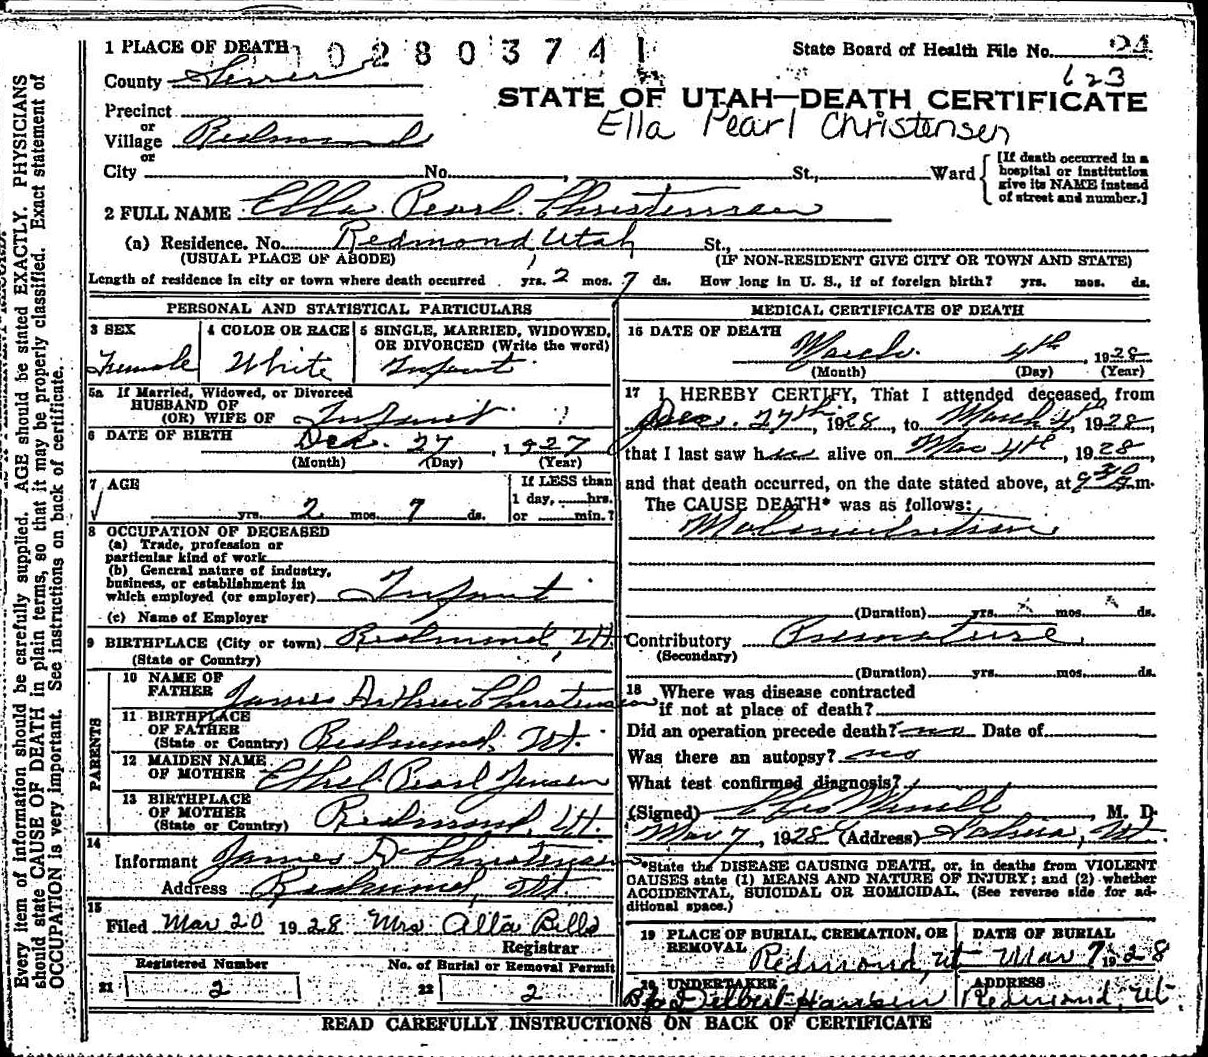 1 PLACE OF DEATH 1 0 2 8 0 3 7 4 1 State Board of Health File No. 94
County Sevier 623
STATE OF UTAH—DEATH CERTIFICATE
Precinct
or
Village Redmond Ella Pearl Christensen
or
City No. , St., Ward [If death occurred in a hospital or institution give its NAME instead of street and number.]
2 FULL NAME Ella Pearl Christensen
(a) Residence. No. Redmond, Utah St.,
(USUAL PLACE OF ABODE) (IF NON-RESIDENT GIVE CITY OR TOWN AND STATE)
Length of residence in city or town where death occurred yrs. 2 mos. 7 ds. How long in U. S., if of foreign birth? yrs. mos. ds.
PERSONAL AND STATISTICAL PARTICULARS
3 SEX 4 COLOR OR RACE 5 SINGLE, MARRIED, WIDOWED,
OR DIVORCED (Write the word)
Female White Infant
5a If Married, Widowed, or Divorced
HUSBAND OF
(OR) WIFE OF Infant
6 DATE OF BIRTH Dec. 27, 1927
(Month) (Day) (Year)
7 AGE If LESS than
1 day, hrs.
yrs. 2 mos. 7 ds. or min.?
8 OCCUPATION OF DECEASED
(a) Trade, profession or
particular kind of work
(b) General nature of industry,
business, or establishment in
which employed (or employer) Infant
(c) Name of Employer
9 BIRTHPLACE (City or town) Redmond, Ut.
(State or Country)
PARENTS
10 NAME OF
FATHER James Arthur Christensen
11 BIRTHPLACE
OF FATHER
(State or Country) Redmond, Ut.
12 MAIDEN NAME
OF MOTHER Ethel Pearl Jensen
13 BIRTHPLACE
OF MOTHER
(State or Country) Redmond, Ut.
14
Informant James A Christensen
Address Redmond, Ut.
15
Filed Mar 20 1928 Mrs Alta Bills
Registrar
Registered Number No. of Burial or Removal Permit
21 2 22 2
MEDICAL CERTIFICATE OF DEATH
16 DATE OF DEATH
March 4th, 1928
(Month) (Day) (Year)
17 I HEREBY CERTIFY, That I attended deceased from
Dec. 27th, 1928, to March 4, 1928,
that I last saw h alive on Mar 4th, 1928,
and that death occurred, on the date stated above, at 9 30 m.
The CAUSE DEATH* was as follows:
Malnutrition
(Duration) yrs. mos. ds.
Contributory Premature
(Secondary)
(Duration) yrs. mos. ds.
18 Where was disease contracted
if not at place of death?
Did an operation precede death? no Date of
Was there an autopsy? no
What test confirmed diagnosis?
(Signed) , M. D.
Mar 7, 1928 (Address) Salina, Ut.
*State the DISEASE CAUSING DEATH, or, in deaths from VIOLENT
CAUSES state (1) MEANS AND NATURE OF INJURY; and (2) whether
ACCIDENTAL, SUICIDAL OR HOMICIDAL. (See reverse side for ad-
ditional space.)
19 PLACE OF BURIAL, CREMATION, OR DATE OF BURIAL
REMOVAL Redmond, Ut Mar 7 1928
20 UNDERTAKER ADDRESS
Delbert Hansen Redmond, Ut.
READ CAREFULLY INSTRUCTIONS ON BACK OF CERTIFICATE
Every item of information should be carefully supplied. AGE should be stated EXACTLY. PHYSICIANS
should state CAUSE OF DEATH in plain terms, so that it may be properly classified. Exact statement of
OCCUPATION is very important. See instructions on back of certificate.